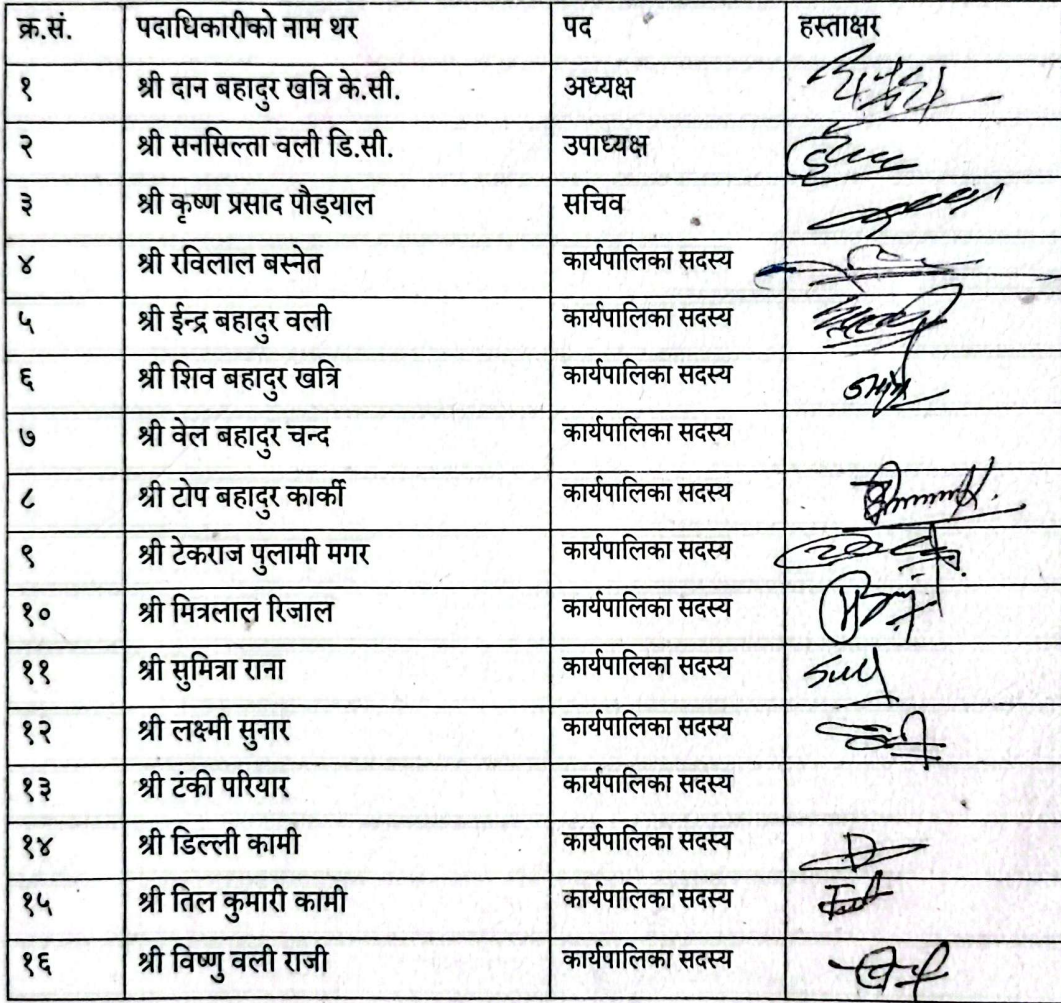 क्र.सं. पदाधिकारीको नाम थर पद हस्ताक्षर
१ श्री दान बहादुर खत्रि के.सी. अध्यक्ष
२ श्री सनसिल्ता वली डि.सी. उपाध्यक्ष
३ श्री कृष्ण प्रसाद पौड्याल सचिव
४ श्री रविलाल बस्नेत कार्यपालिका सदस्य
५ श्री ईन्द्र बहादुर वली कार्यपालिका सदस्य
६ श्री शिव बहादुर खत्रि कार्यपालिका सदस्य
७ श्री वेल बहादुर चन्द कार्यपालिका सदस्य
८ श्री टोप बहादुर कार्की कार्यपालिका सदस्य
९ श्री टेकराज पुलामी मगर कार्यपालिका सदस्य
१० श्री मित्रलाल रिजाल कार्यपालिका सदस्य
११ श्री सुमित्रा राना कार्यपालिका सदस्य
१२ श्री लक्ष्मी सुनार कार्यपालिका सदस्य
१३ श्री टंकी परियार कार्यपालिका सदस्य
१४ श्री डिल्ली कामी कार्यपालिका सदस्य
१५ श्री तिल कुमारी कामी कार्यपालिका सदस्य
१६ श्री विष्णु वली राजी कार्यपालिका सदस्य